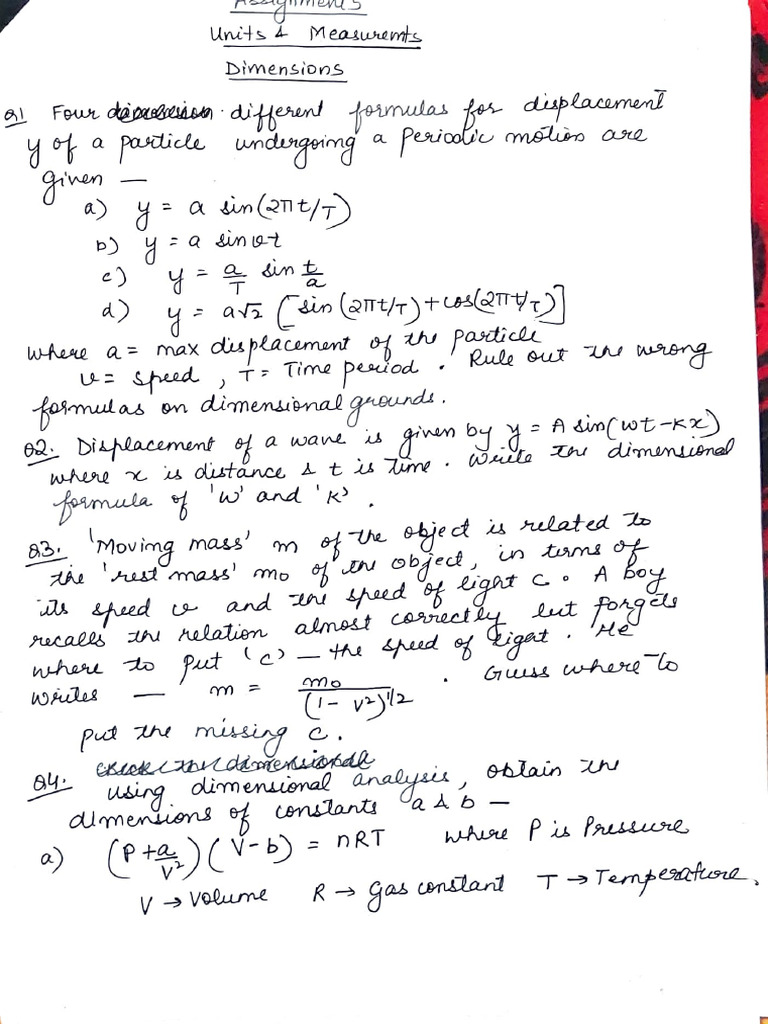 Assignments
Units & Measuremts
Dimensions
Q1 Four different formulas for displacement
y of a particle undergoing a periodic motion are
given —
a) y = a sin(2πt/T)
b) y = a sin vt
c) y = a/T sin t/a
d) y = a√2 [sin(2πt/T)+cos(2πt/T)]
where a = max displacement of the particle
v = speed, T = Time period. Rule out the wrong
formulas on dimensional grounds.
Q2. Displacement of a wave is given by y = A sin(wt-kx)
where x is distance & t is time. Write the dimensional
formula of 'w' and 'k'.
Q3. 'Moving mass' m of the object is related to
the 'rest mass' mo of the object, in terms of
its speed v and the speed of light c. A boy
recalls the relation almost correctly but forgets
where to put 'c' — the speed of light. He
writes — m = mo/(1 - v²)^1/2. Guess where to
put the missing c.
Q4. using dimensional analysis, obtain the
dimensions of constants a & b —
a) (P+a/V²)(V-b) = nRT where P is Pressure
V → Volume R → gas constant T → Temperature.